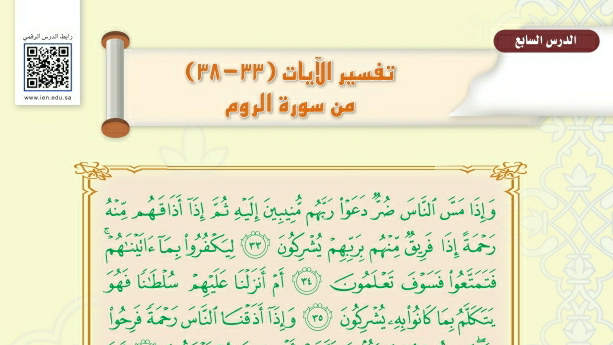 رابط الدرس الرقمي
www.ien.edu.sa
الدرس السابع
تفسير الآيات (٣٣-٣٨)
من سورة الروم
وَإِذَا مَسَّ ٱلنَّاسَ ضُرٌّ دَعَوْا۟ رَبَّهُم مُّنِيبِينَ إِلَيْهِ ثُمَّ إِذَآ أَذَاقَهُم مِّنْهُ
رَحْمَةً إِذَا فَرِيقٌ مِّنْهُم بِرَبِّهِمْ يُشْرِكُونَ ٣٣ لِيَكْفُرُوا۟ بِمَآ ءَاتَيْنَٰهُمْ ۚ
فَتَمَتَّعُوا۟ فَسَوْفَ تَعْلَمُونَ ٣٤ أَمْ أَنزَلْنَا عَلَيْهِمْ سُلْطَٰنًا فَهُوَ
يَتَكَلَّمُ بِمَا كَانُوا۟ بِهِۦ يُشْرِكُونَ ٣٥ وَإِذَآ أَذَقْنَا ٱلنَّاسَ رَحْمَةً فَرِحُوا۟